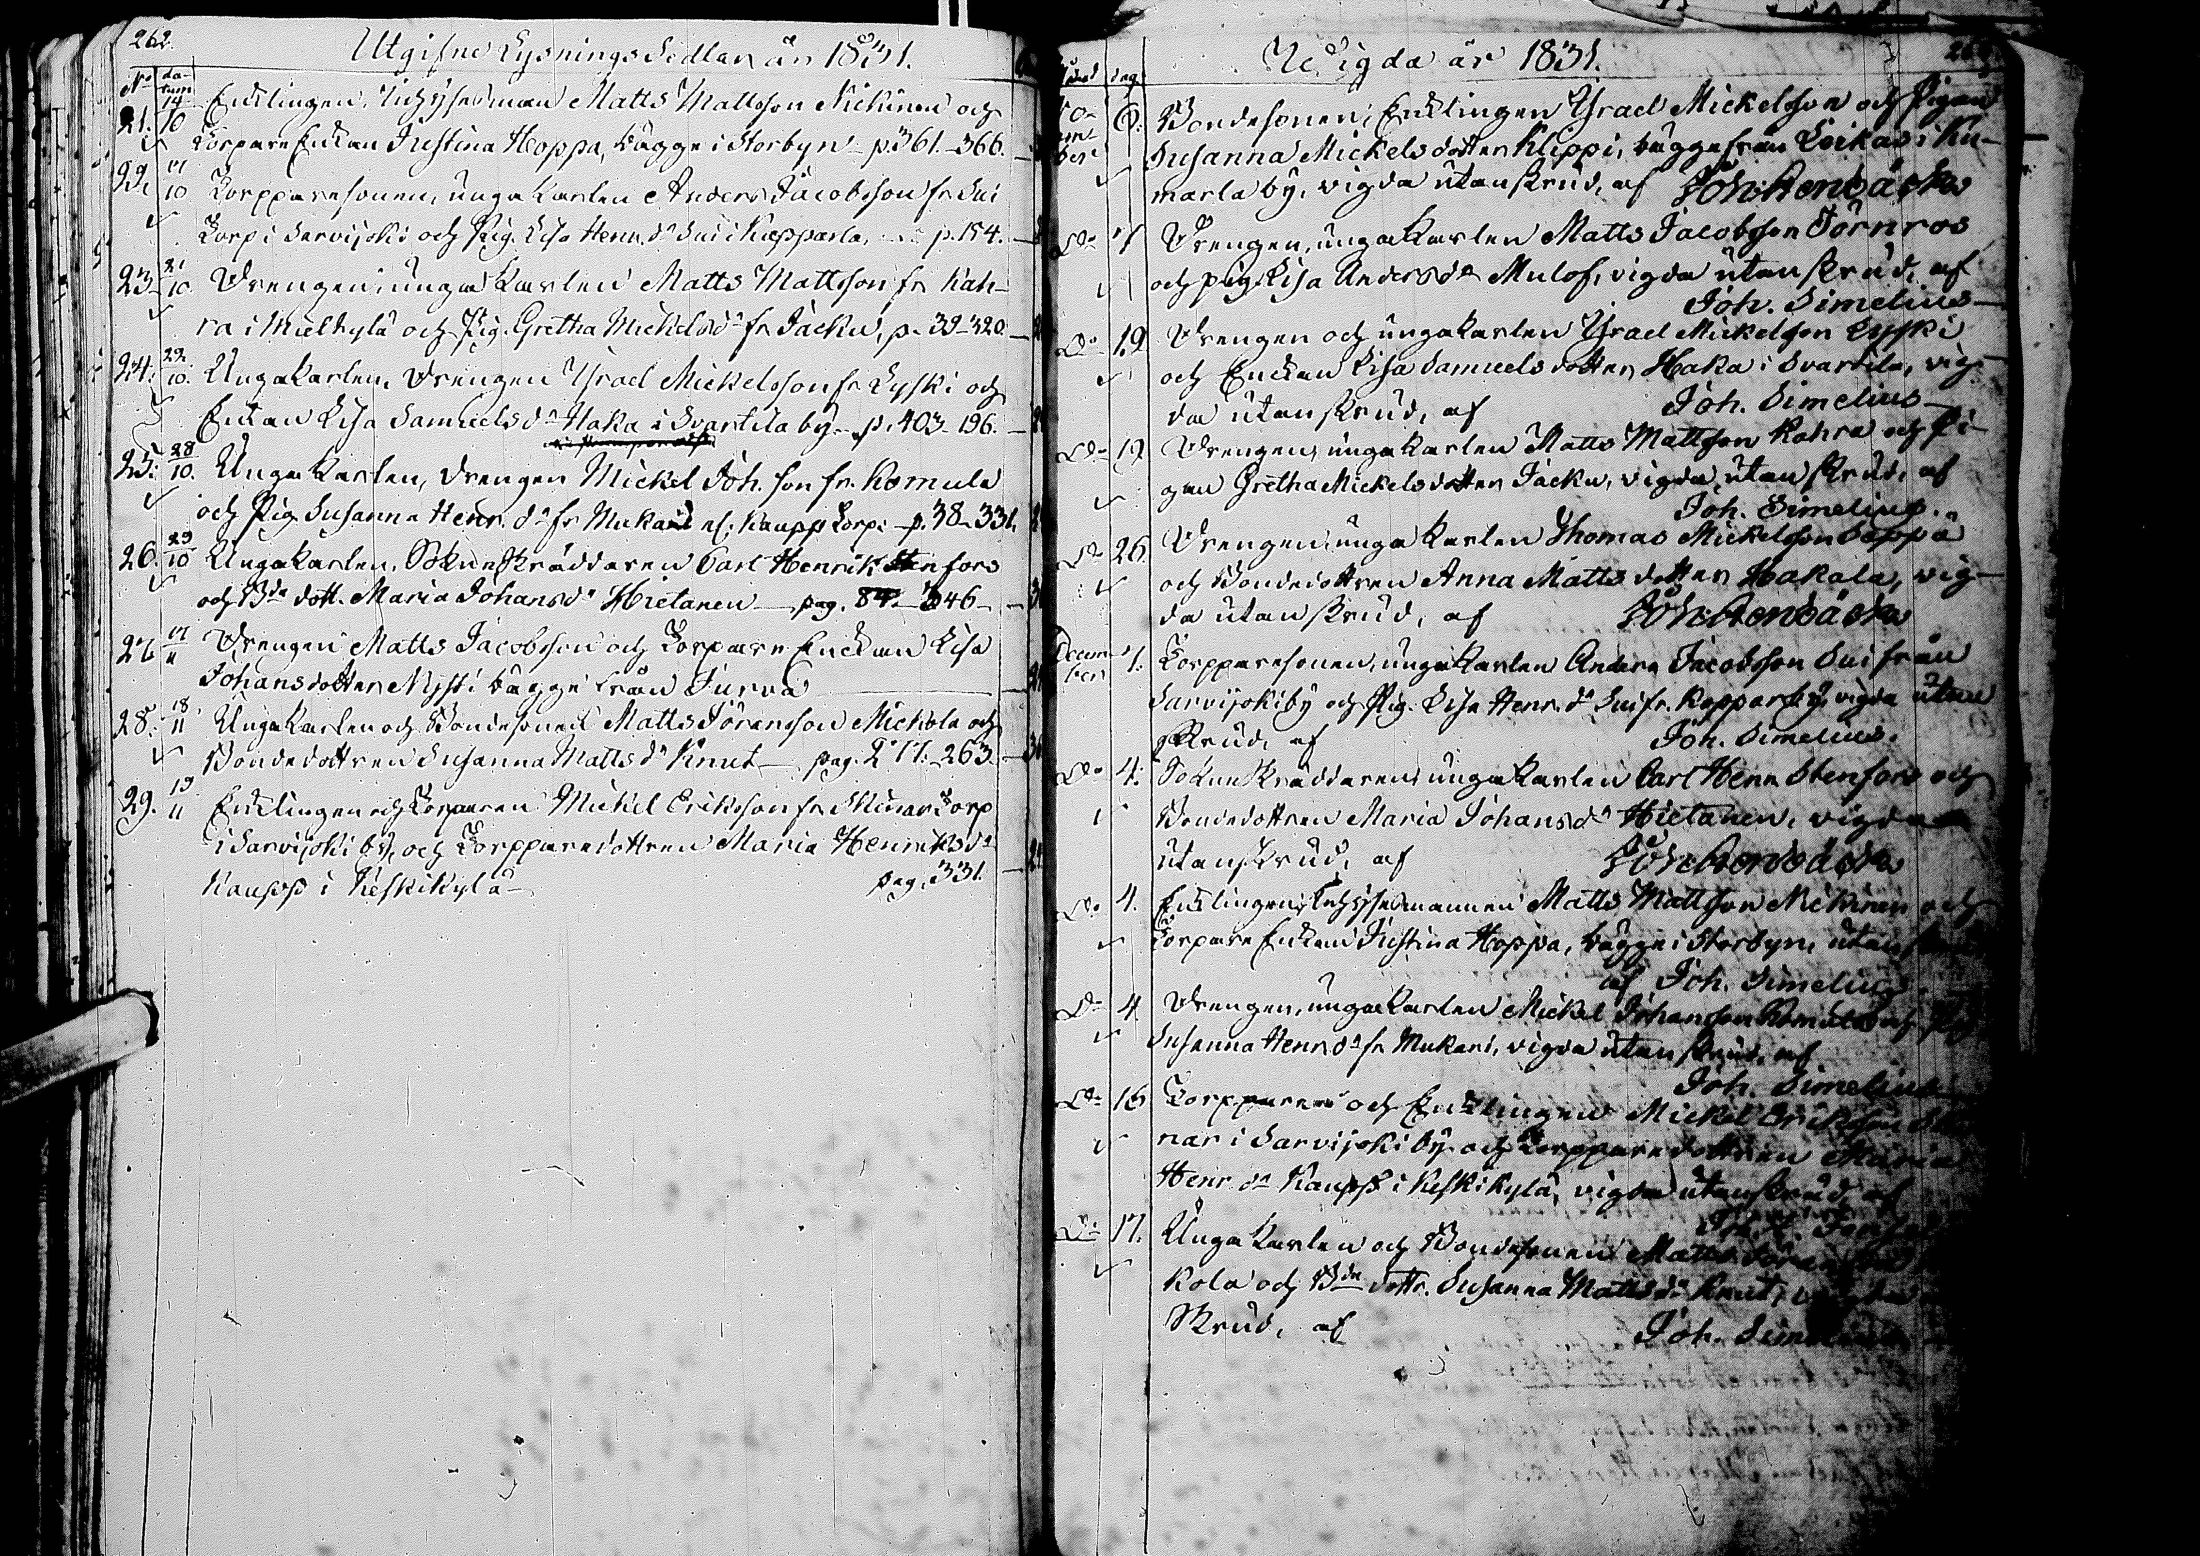 262.
Utgifne Lysnings Sedlar år 1831.
No datum
21. 14/10 Enklingen, Inhysesman Matts Mattsson Nickinen och
Torpare Enkan Justina Hoppa, bägge i Storbyn p. 361. 366.
22. 17/10 Torpparesonen, unga Karlen Anders Jacobsson fr. Sui
Torp i Sarvijoki och Pig. Lisa Henr. dr Sui i Kopparla, p. 154.
23. 21/10. Drengen, unga Karlen Matts Mattsson fr. Kah-
ra i Mielkylä och Pig. Gretha Mickelsdr fr. Jacku, p. 39-320.
24. 22/10. Unga Karlen, Drengen Ysrael Mickelsson fr. Lyski och
Enkan Lisa Samuelsdr Haka i Svartila by. p. 403-196.
25. 28/10. Unga Karlen, Drengen Mickel Joh. son fr. Komula
och Pig. Susanna Henr. dr fr. Mukari el. Kaupp Torp. p. 38-331.
26. 29/10 Unga Karlen, Sokneskräddaren Carl Henrik Stenfors
och Bde dott. Maria Johansdr Hietanen pag. 84. 346
27. 17/11 Drengen Matts Jacobsson och Torpare Enckan Lisa
Johansdotter Nysti bägge från Jurva
28. 18/11 Unga Karlen och Bondesonen Matts Göransson Mickola och
Bondedottren Susanna Matts dr Knut pag. 217. 263.
29. 19/11 Enklingen och Torparen Mickel Eriksson fr. Skinar Torp
i Sarvijoki by, och Torpparedottren Maria Henriksdr
Kauppi i Keskikylä pag. 331.
Wigda år 1831.
dag
No-
vem-
ber 6. Bondesonen, Encklingen Ysrael Mickelsson och Pigan
Susanna Mickelsdotter Klippi, bägge från Loikas i Ku-
marla by, vigda utan skrud, af
Do 7 Drengen, unga Karlen Matts Jacobsson Törnros
och pig. Lisa Andersdr Mulof, vigda utan skrud, af
Joh. Simelius
Do 19 Drengen och unga Karlen Ysrael Mickelsson Lyski
och Enckan Lisa Samuelsdotter Haka i Svartila, vig-
da utan skrud, af Joh. Simelius
Do 19 Drengen, unga Karlen Matts Mattsson Kahra och Pi-
gan Gretha Mickelsdotter Jacku, vigda utan skrud, af
Joh. Simelius.
Do 26 Drengen, unga Karlen Thomas Mickelsson Seppä
och Bondedottren Anna Mattsdotter Hakala, vig-
da utan skrud, af
Decem-
ber 4. Torpparesonen, unga Karlen Anders Jacobsson Sui från
Sarvijoki by och Pig. Lisa Henr. dr Sui fr. Kopparla by, vigda utan
skrud, af Joh. Simelius.
Do 4. Sokneskräddaren, unga Karlen Carl Henr. Stenfors och
Bondedottren Maria Johansdr Hietanen, vigda
utan skrud, af
Do 4. Encklingen, Inhysesmannen Matts Mattsson Nickinen och
Torpare Enkan Justina Hoppa, bägge i Storbyn, utan
af Joh. Simelius
Do 4 Drengen, unga Karlen Mickel Johansson Komula och Pig.
Susanna Henr. dr fr. Mukari, vigda utan skrud, af
Joh. Simelius
Do 16 Torpparen och Encklingen Mickel Eriksson
nar i Sarvijoki by och Torpparedottren Maria
Henr. dr Kauppi i Keskikylä, vigda utan skrud, af
Do 17. Unga Karlen och Bondesonen Matts Göransson
kola och Bde dottr. Susanna Mattsdr Knut,
skrud, af Joh. Simelius